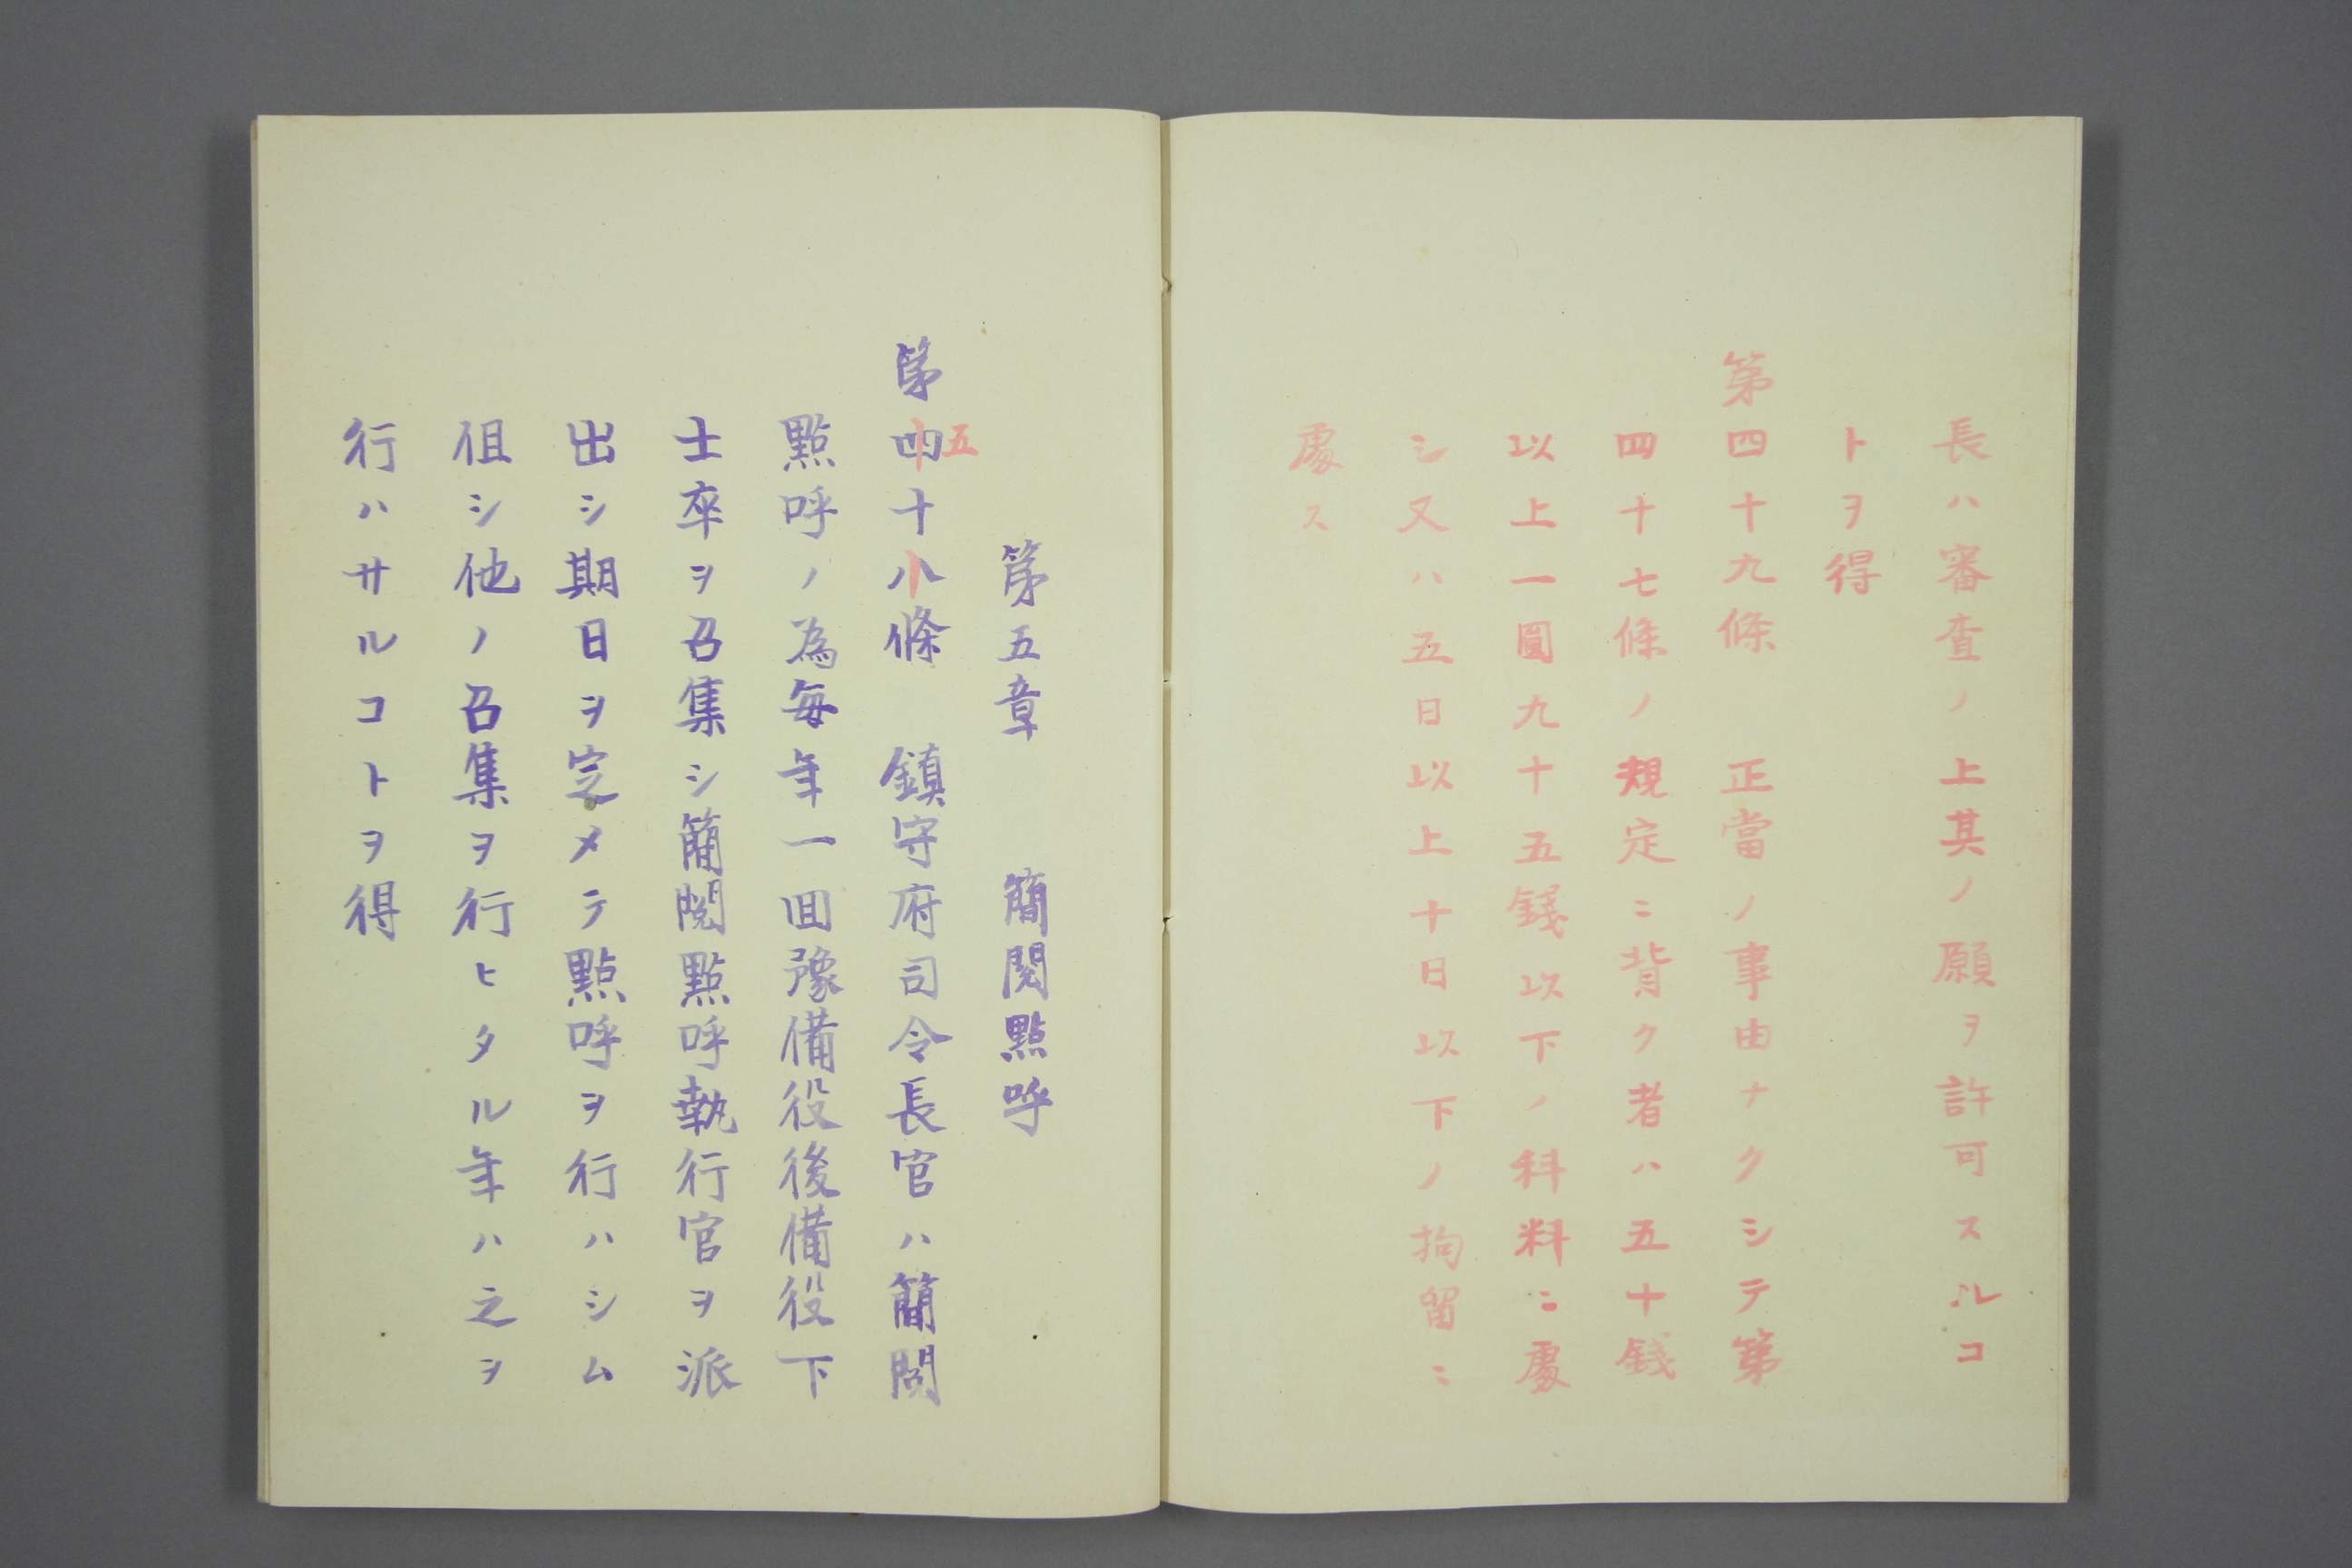 長ハ審査ノ上其ノ願ヲ許可スルコ
トヲ得
第四十九條　正當ノ事由ナクシテ第
四十七條ノ規定ニ背ク者ハ五十錢
以上一圓九十五錢以下ノ科料ニ處
シ又ハ五日以上十日以下ノ拘留ニ
處ス
第五章　簡閱點呼
五
第四十八條　鎮守府司令長官ハ簡閱
點呼ノ為每年一回豫備役後備役下
士卒ヲ召集シ簡閱點呼執行官ヲ派
出シ期日ヲ定メテ點呼ヲ行ハシム
伹シ他ノ召集ヲ行ヒタル年ハ之ヲ
行ハサルコトヲ得